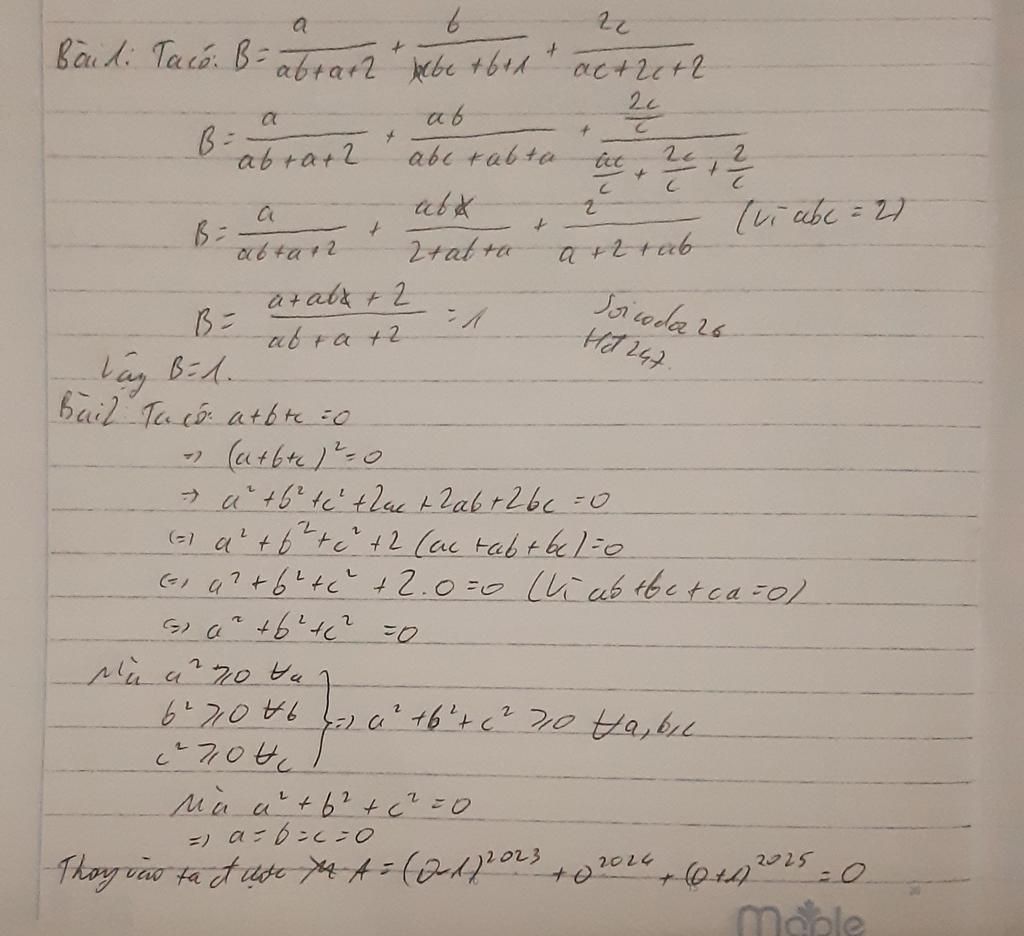 Bài 1: Ta có: B = a/(ab+a+2) + b/(bc+b+1) + 2c/(ac+2c+2)
B = a/(ab+a+2) + ab/(abc+ab+a) + (2c/c)/(ac/c + 2c/c + 2/c)
B = a/(ab+a+2) + ab/(2+ab+a) + 2/(a+2+ab) (Vì abc = 2)
B = (a+ab+2)/(ab+a+2) = 1
Vậy B=1.
Bài 2: Ta có: a+b+c = 0
=> (a+b+c)² = 0
=> a²+b²+c²+2ac+2ab+2bc = 0
<=> a²+b²+c²+2(ac+ab+bc) = 0
<=> a²+b²+c²+2.0 = 0 (Vì ab+bc+ca = 0)
<=> a²+b²+c² = 0
Mà a² ⩾ 0 ∀a
b² ⩾ 0 ∀b } => a²+b²+c² ⩾ 0 ∀a,b,c
c² ⩾ 0 ∀c
Mà a²+b²+c² = 0
=> a=b=c=0
Thay vào ta được A = (0-1)²⁰²³ + 0²⁰²⁴ + (0+1)²⁰²⁵ = 0
Maple